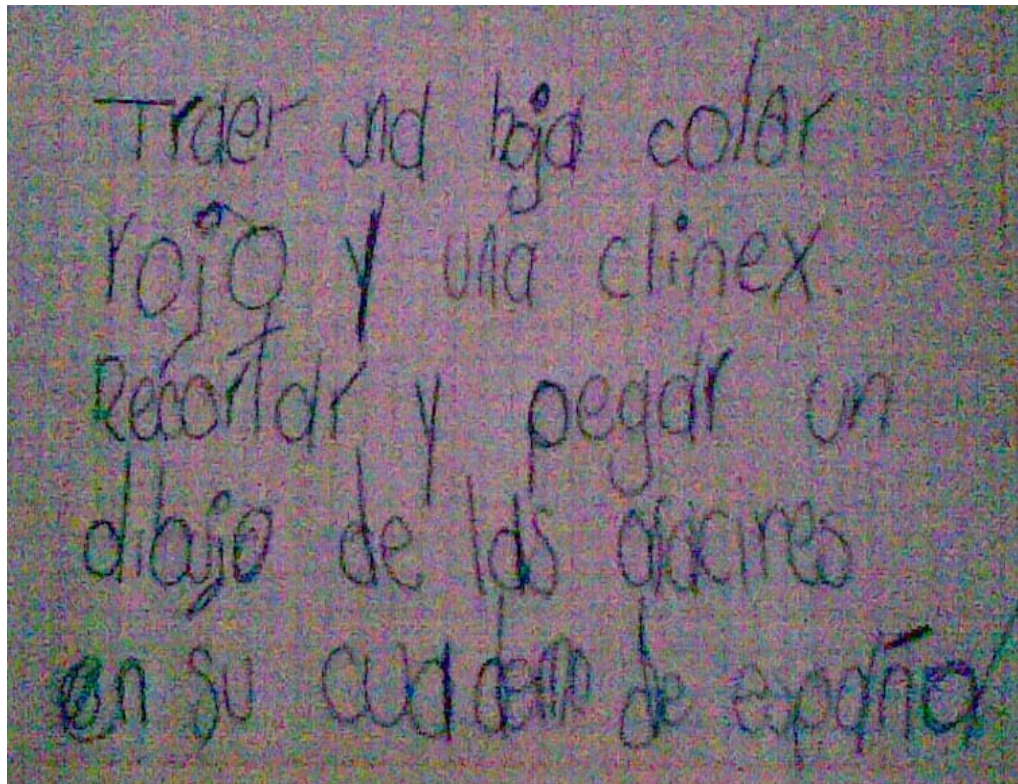 Traer una hoja color
rojo y una clinex.
Recortar y pegar un
dibajo de las
en su cuaderno de español